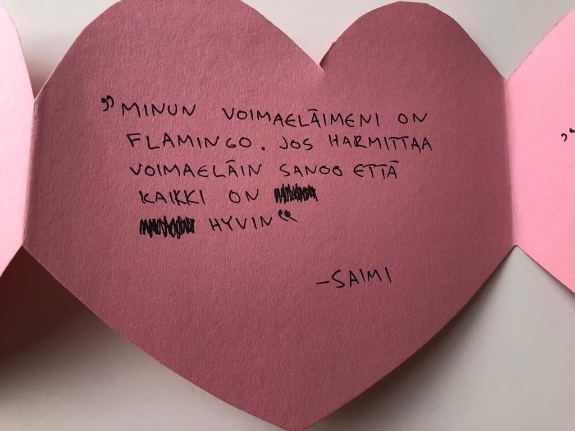 ”MINUN VOIMAELÄIMENI ON
FLAMINGO. JOS HARMITTAA
VOIMAELÄIN SANOO ETTÄ
KAIKKI ON
HYVIN“
-SAIMI
„